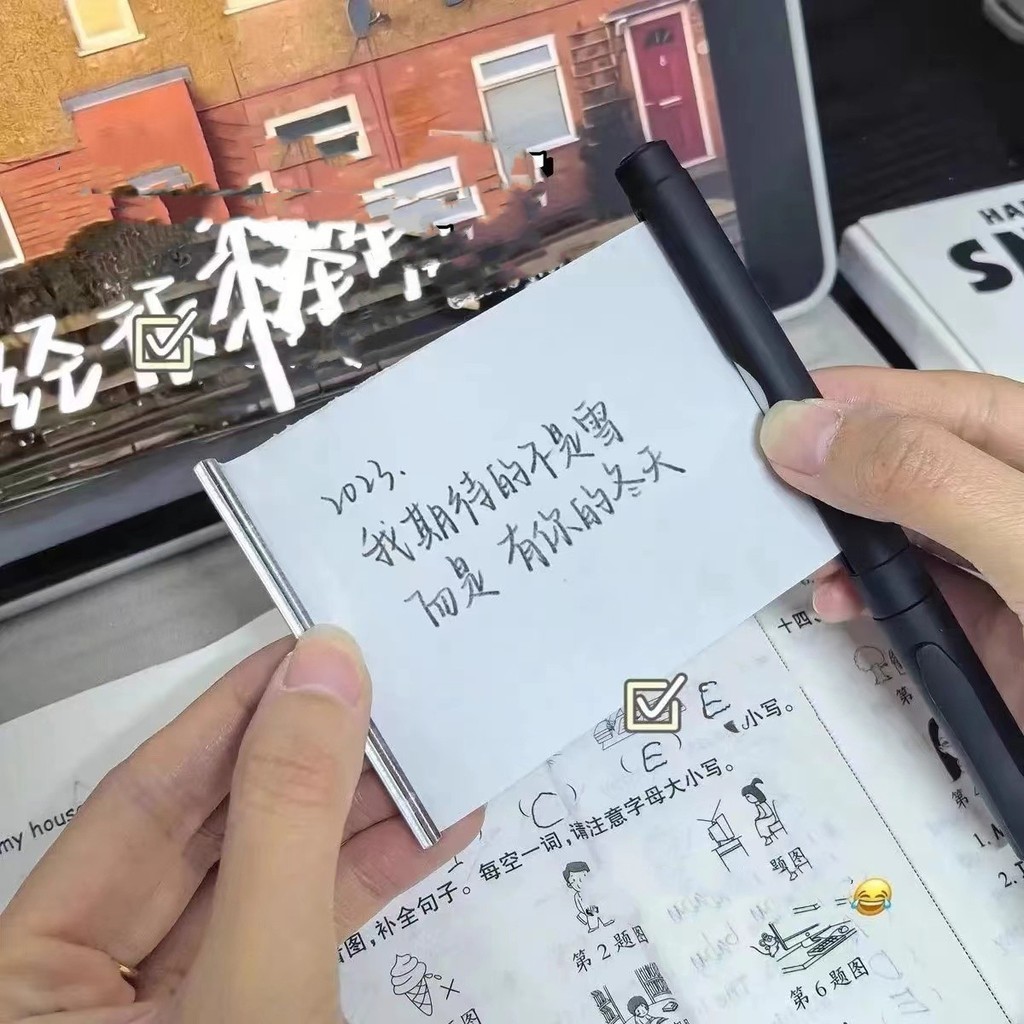 经
HA
S
2023.
我期待的不是雪
而是 有你的冬天
十四、
第
E
小写。
(E)
(C)
my hous
图,补全句子。每空一词,请注意字母大小写。
题图
第2题图
第6题图
题图
第
1.
2.